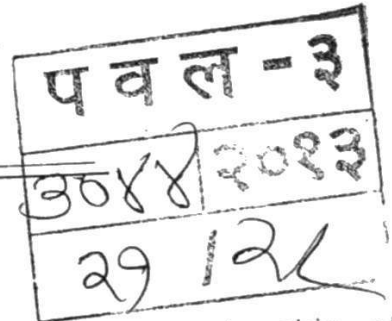 प व ल - ३
३०४४ २०१३
२१ / २८